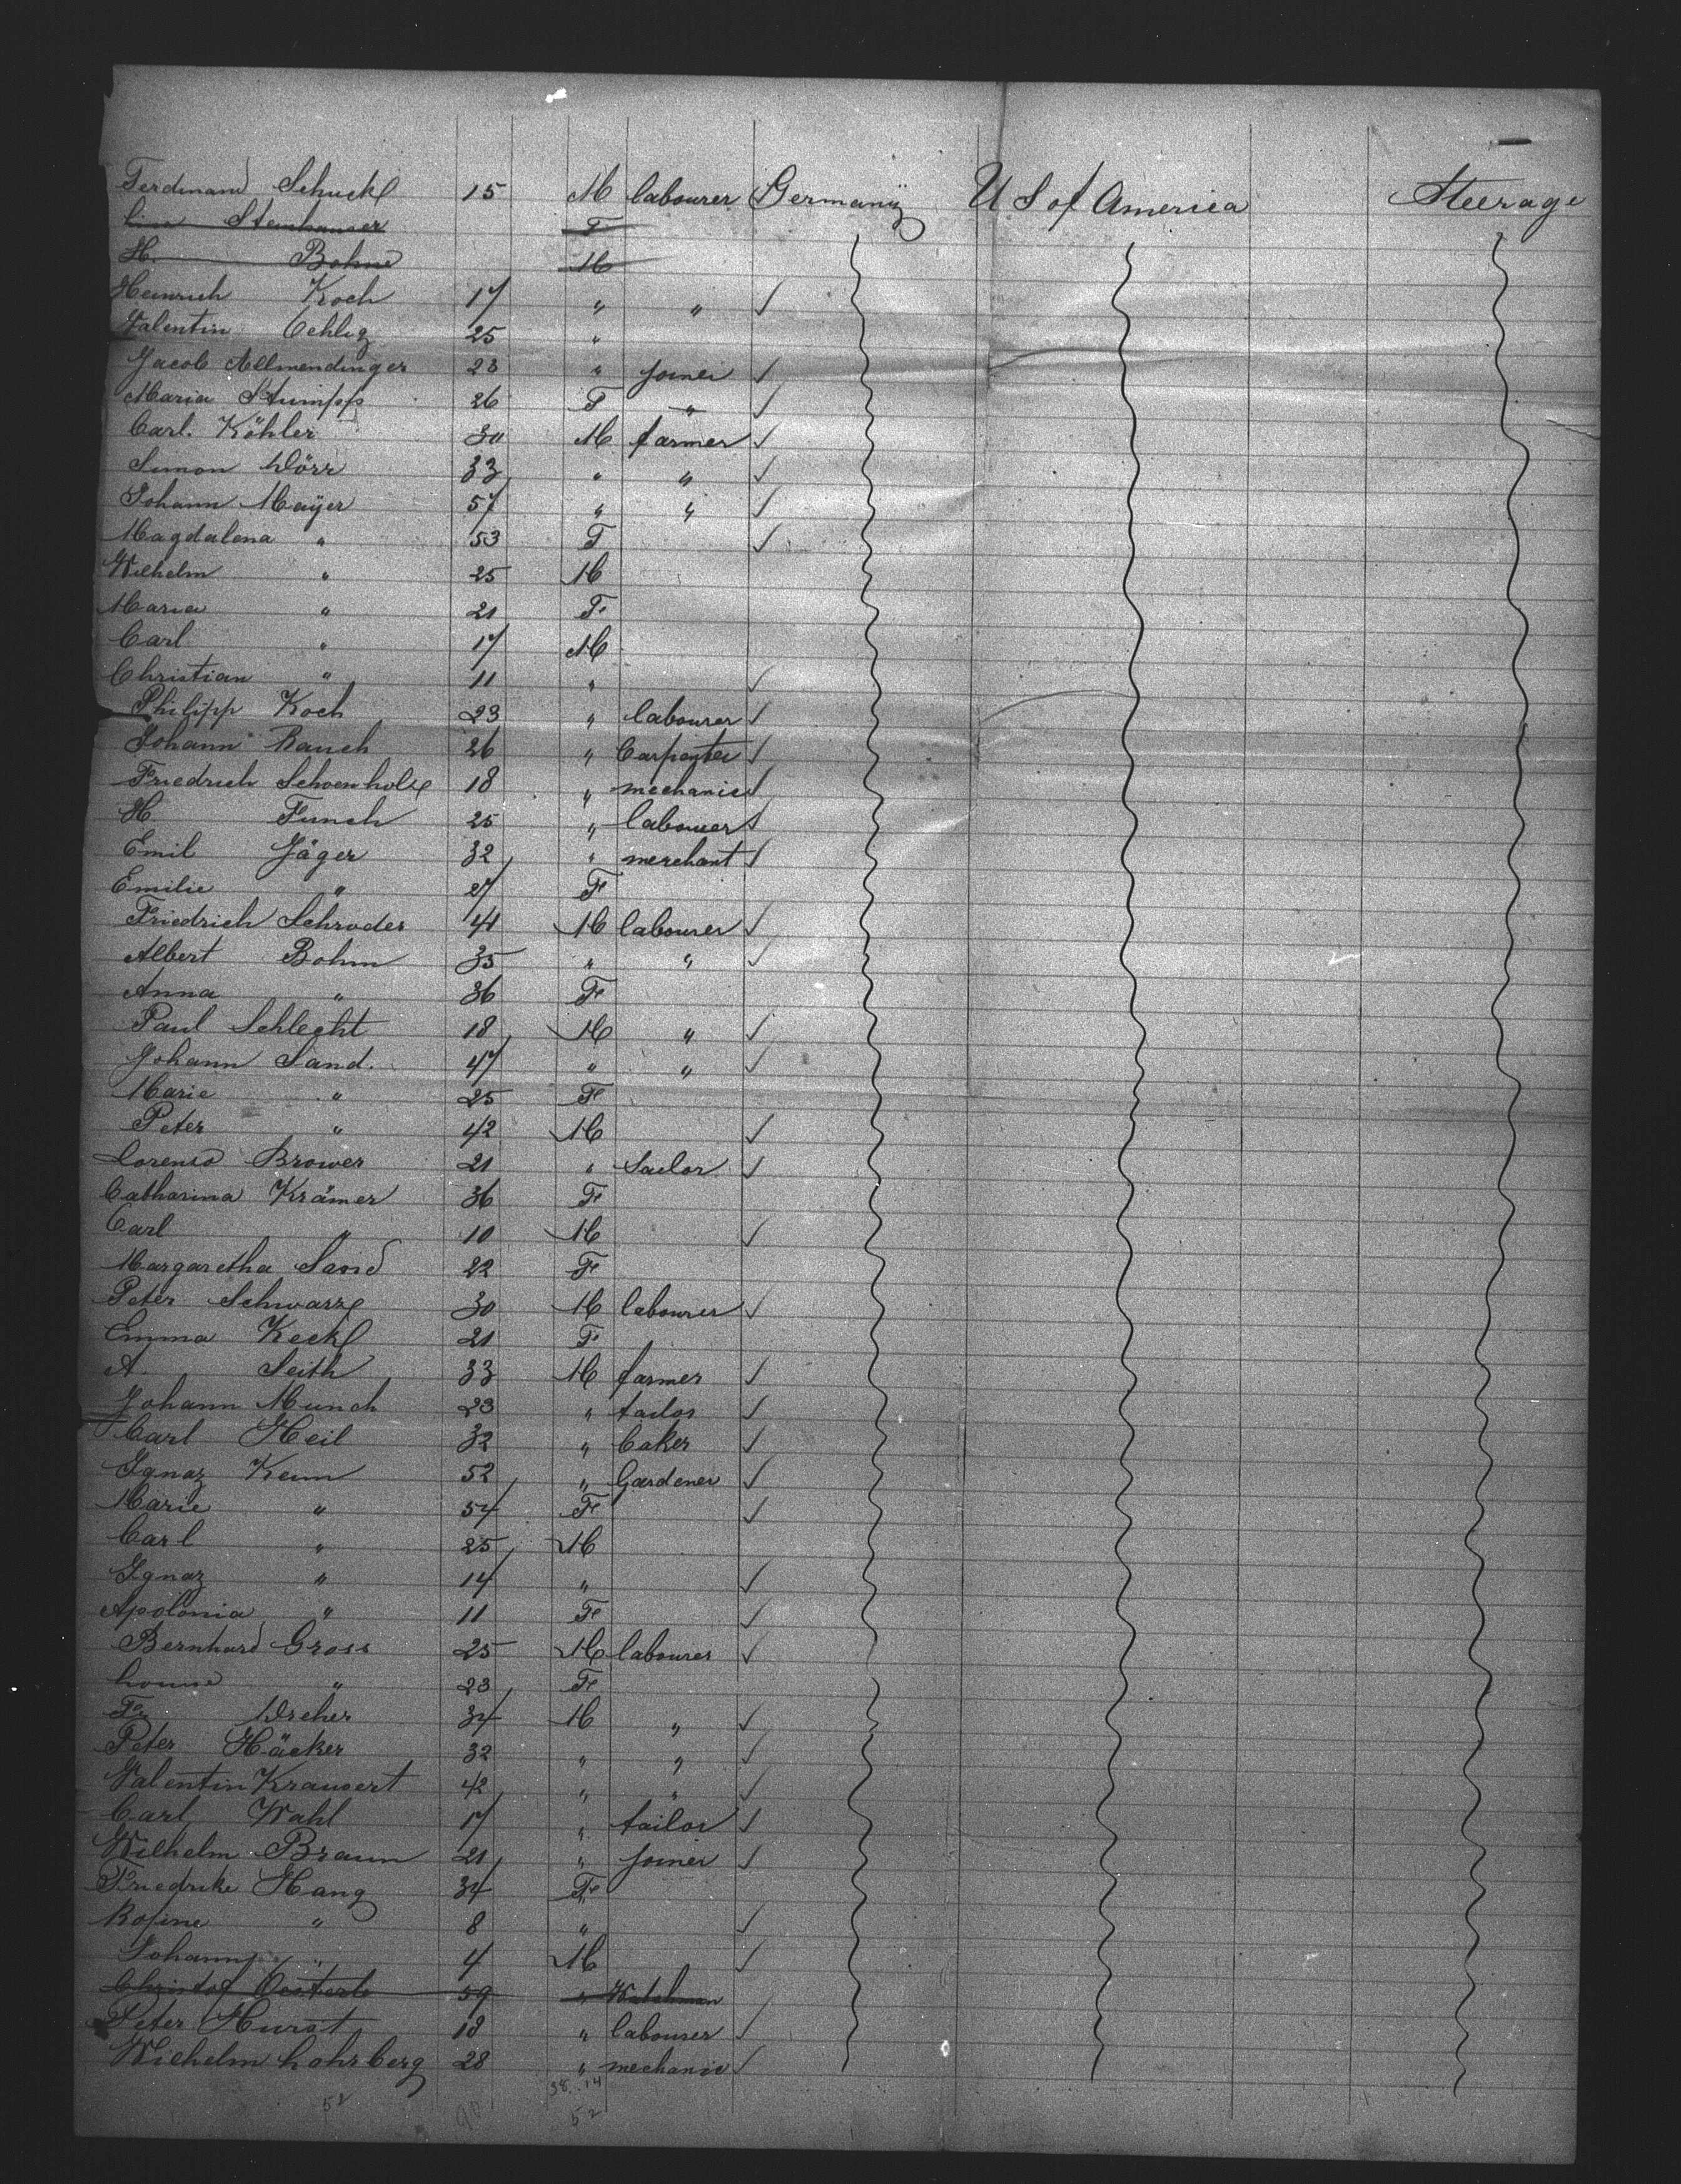 Ferdinand Schuckl 15 M labourer Germany U S of America Steerage
Lina Steinhauser F
H. Bohne M
Heinrich Koch 17 " " ✓
Valentin Oehlig 25 "
Jacob Allmendinger 23 " joiner ✓
Maria Stumpp 26 F " ✓
Carl. Köhler 30 M farmer ✓
Simon Dörr 33 " " ✓
Johann Mayer 57 " " ✓
Magdalena " 53 F ✓
Wilhelm " 25 M
Maria " 21 F
Carl " 17 M
Christian " 11 " ✓
Philipp Koch 23 " labourer ✓
Johann Rauch 26 " Carpenter ✓
Friedrich Schoenholz 18 " mechanic ✓
H Funch 25 " labourer ✓
Emil Jäger 32 " merchant ✓
Emilie " 27 F
Friedrich Schroder 41 M labourer ✓
Albert Bohm 35 " " ✓
Anna " 36 F
Paul Schlecht 18 M " ✓
Johann Sand. 47 " " ✓
Marie " 25 F
Peter " 42 M ✓
Lorenso Brower 21 " Sailor ✓
Catharina Krämer 36 F
Carl " 10 M ✓
Margaretha Sand 22 F
Peter Schwarz 30 M labourer ✓
Emma Keckl 21 F
A. Seith 33 M farmer ✓
Johann Munch 23 " tailor ✓
Carl Heil 32 " baker ✓
Ignaz Keim 52 " Gardener ✓
Marie " 54 F ✓
Carl " 25 M
Ignaz " 14 " ✓
Apolonia " 11 F ✓
Bernhard Gross 25 M labourer ✓
Louise " 23 F
Fr Dreher 34 M " ✓
Peter Häcker 32 " " ✓
Valentin Krausert 42 " " ✓
Carl Wahl 17 " tailor ✓
Wilhelm Braun 21 " joiner ✓
Friedrike Hang 34 F
Rosine " 8 " ✓
Johann " 4 M ✓
Christof Oesterle 59 " Watchman
Peter Hurst 18 " labourer ✓
Wilhelm Lohrberg 28 " mechanic ✓
38 14
52 90 52